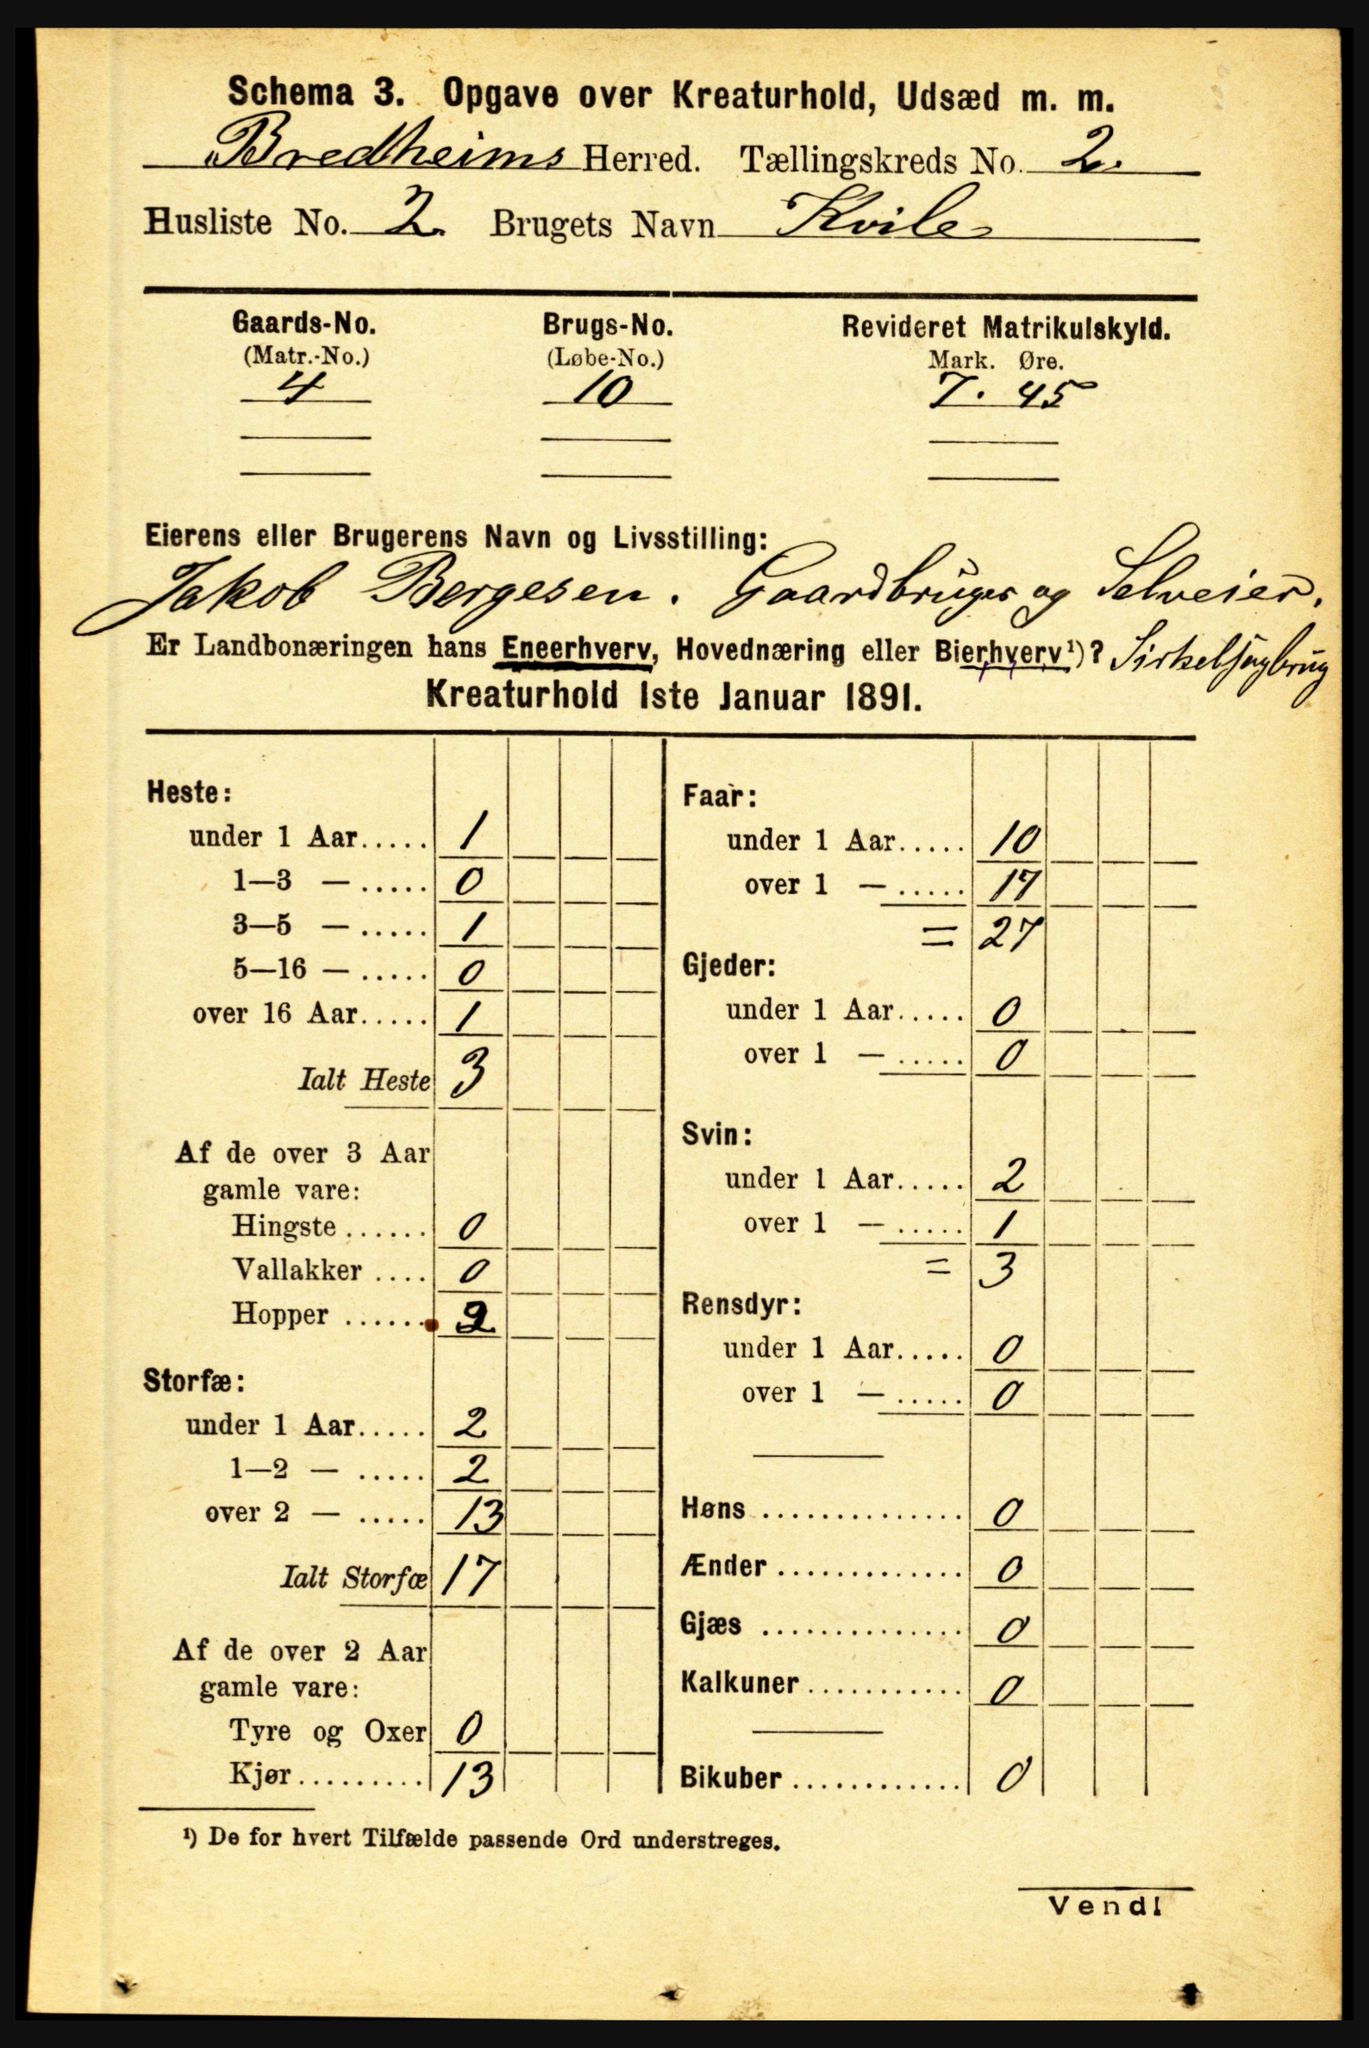 Schema 3. Opgave over Kreaturhold, Udsæd m. m.
Bredheims Herred. Tællingskreds No. 2.
Husliste No. 2. Brugets Navn Kvile
Gaards-No. Brugs-No. Revideret Matrikulskyld.
(Matr.-No.) (Løbe-No.) Mark. Øre.
4 10 7. 45
Eierens eller Brugerens Navn og Livsstilling:
Jakob Bergesen. Gaardbruger og Selveier.
Er Landbonæringen hans Eneerhverv, Hovednæring eller Bierhverv¹)? Sirkelsagbrug
Kreaturhold 1ste Januar 1891.
Heste:
under 1 Aar..... 1
1—3 — ..... 0
3—5 — ..... 1
5—16 — ..... 0
over 16 Aar..... 1
Ialt Heste 3
Af de over 3 Aar
gamle vare:
Hingste ...... 0
Vallakker .... 0
Hopper ...... 2
Storfæ:
under 1 Aar..... 2
1—2 — ..... 2
over 2 — ..... 13
Ialt Storfæ 17
Af de over 2 Aar
gamle vare:
Tyre og Oxer 0
Kjør......... 13
Faar:
under 1 Aar..... 10
over 1 — ..... 17
= 27
Gjeder:
under 1 Aar..... 0
over 1 — ..... 0
Svin:
under 1 Aar..... 2
over 1 — ..... 1
= 3
Rensdyr:
under 1 Aar..... 0
over 1 — ..... 0
Høns .............. 0
Ænder ............. 0
Gjæs .............. 0
Kalkuner........... 0
Bikuber ............ 0
¹) De for hvert Tilfælde passende Ord understreges.
Vend!